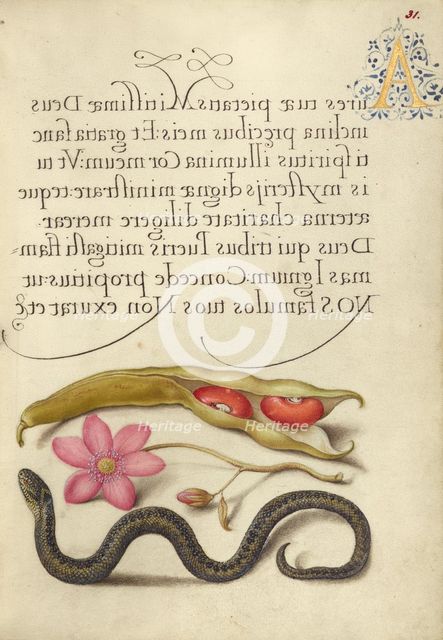 31.
Aures tuæ pietatis Mitissimæ Deus
inclina precibus meis Et gratia sanc
ti spiritus illumina Cor meum: Vt tu
is mysterijs dignæ ministrare: teque
æterna charitate diligere merear.
Deus qui tribus Pueris mitigasti flam=
mas Ignium: Concede propitius: ut
NOS famulos tuos Non exurat etc
Heritage
Heritage
Heritage
Heritage